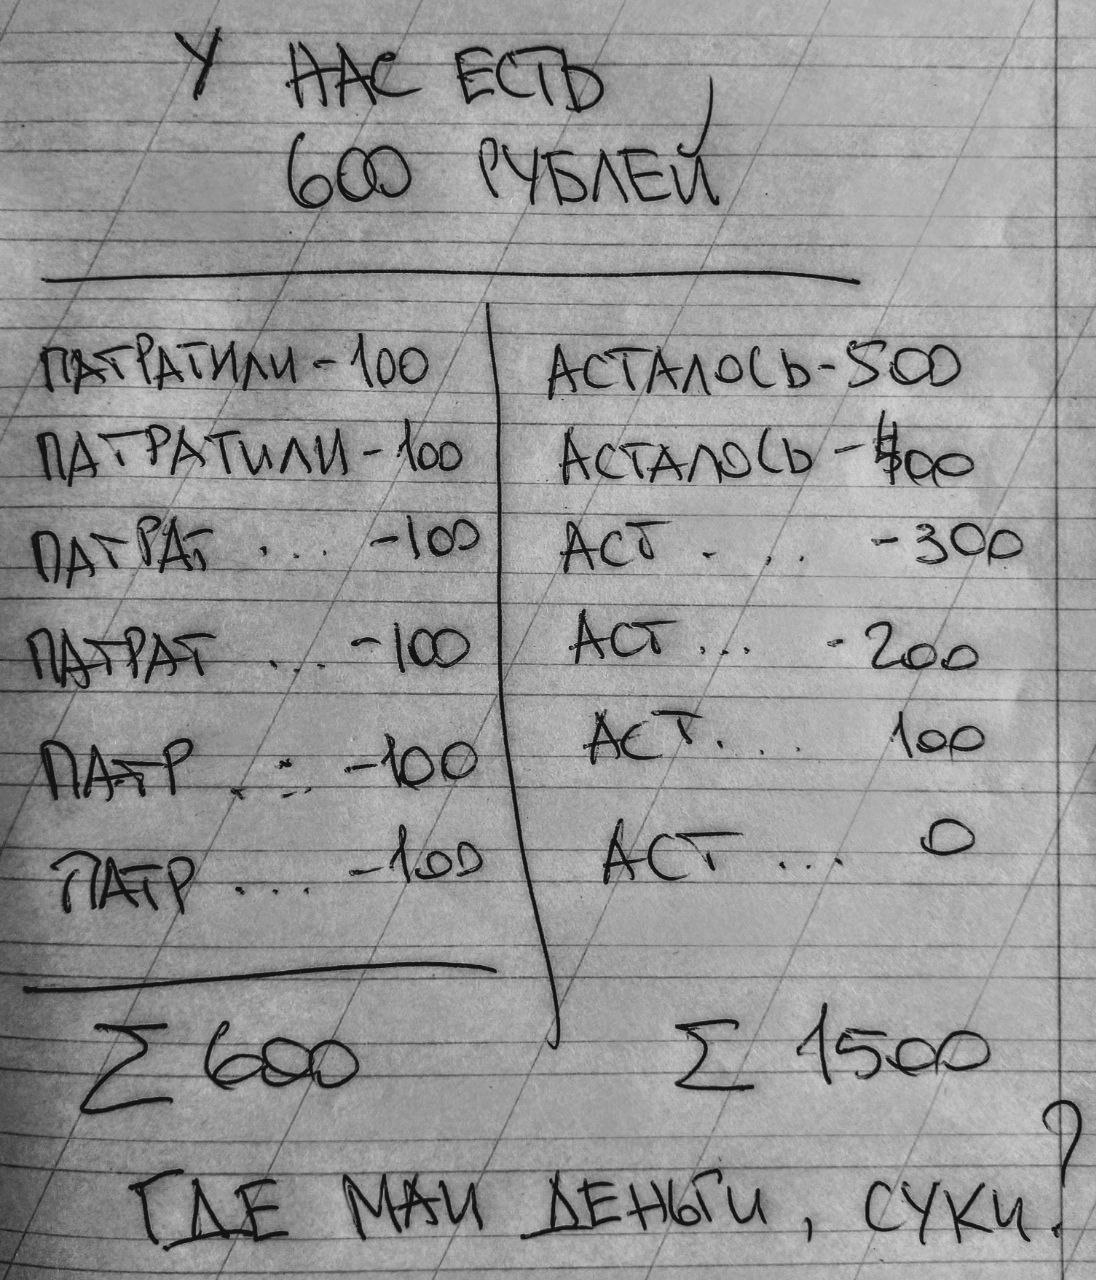 У НАС ЕСТЬ
600 РУБЛЕЙ
ПАТРАТИЛИ - 100 АСТАЛОСЬ - 500
ПАТРАТИЛИ - 100 АСТАЛОСЬ - 400
ПАТРАТ ... - 100 АСТ ... - 300
ПАТРАТ ... - 100 АСТ ... - 200
ПАТР ... - 100 АСТ ... 100
ПАТР ... - 100 АСТ ... 0
Σ 600 Σ 1500
ГДЕ МАИ ДЕНЬГИ, СУКИ?